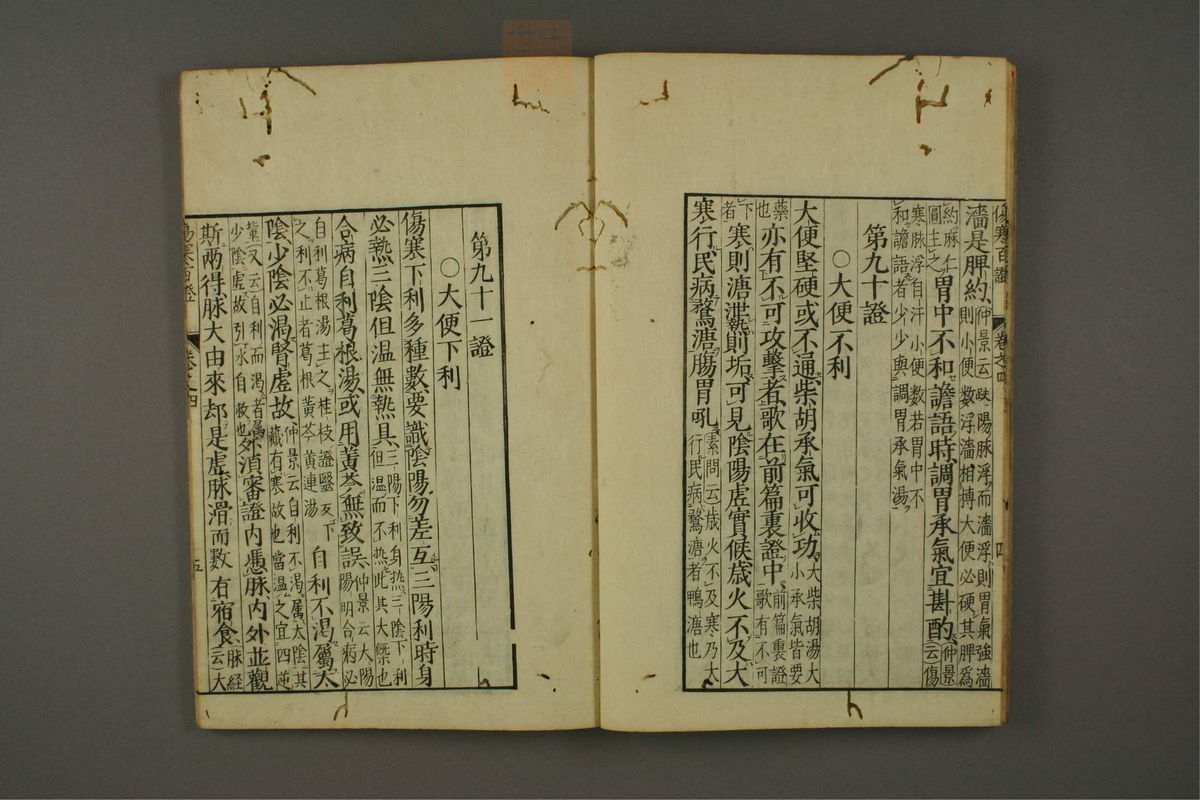 傷寒百證 卷之四 四
濇是脾約仲景云趺陽脉浮而濇浮則胃氣強濇
則小便數浮濇相搏大便必硬其脾爲
約麻仁
圓主之胃中不和譫語時調胃承氣宜斟酌仲景
云傷
寒脉浮自汗小便數若胃中不
和譫語者少少與調胃承氣湯
第九十證
○大便不利
大便堅硬或不通柴胡承氣可收功大柴胡湯大
小承氣皆要
藥
也亦有不可攻擊者歌在前篇裏證中前篇裏證
歌有不可
下
者寒則溏泄熱則垢可見陰陽虛實候歲火不及大
寒行民病鶩溏腸胃吼素問云歲火不及寒乃大
行民病鶩溏者鴨溏也
第九十一證
○大便下利
傷寒下利多種數要識陰陽勿差互三陽利時身
必熱三陰但温無熱具三陽下利身热三陰下利
但温而不热此其大槩也
合病自利葛根湯或用黃芩無致誤仲景云大陽
陽明合病必
自利葛根湯主之桂枝證醫反下
之利不止者葛根黃芩黃連湯自利不渴屬太
陰少陰必渴腎虛故仲景云自利不渴屬太陰其
藏有寒故也當温之宜四逆
輩又云自利而渴者屬
少陰虛故引水自救也外須審證内憑脉内外並觀
斯兩得脉大由來却是虛脉滑而數有宿食脉経
云大
傷寒百證 卷之四 五